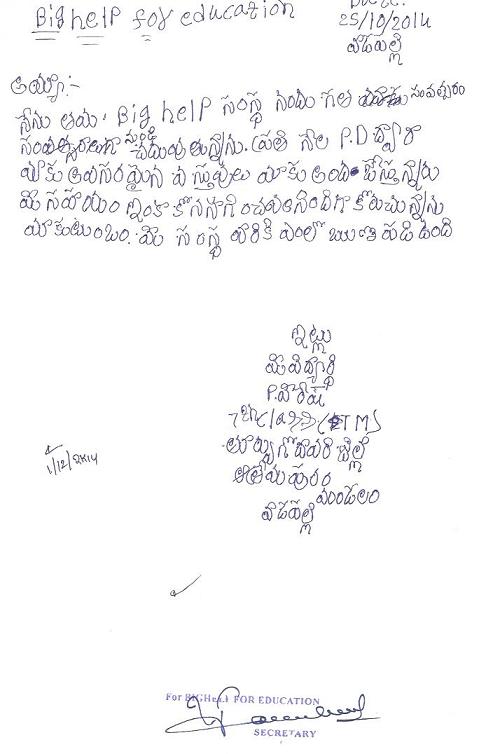 Big help for education
25/10/2014
వాడపల్లి
అయ్యా:-
నేను అయ్య. Big help సంస్థ నందు గత సంవత్సరం
సంవత్సరాలుగా నుండి చదువుతున్నాను. ప్రతి నెల P.D ద్వారా
మాకు అవసరమైన వస్తువులు మాకు అంద చేస్తున్నారు
మీ సహాయం ఇంకా కొనసాగించవలసిందిగా కోరుచున్నాను
మాకుటుంబం. మీ సంస్థ వారికి ఎంతో ఋణ పడి ఉంది
ఇట్లు
మీ విద్యార్థి
7th class (TM)
తూర్పుగోదావరి జిల్లా
ఆత్రేయపురం
మండలం
వాడపల్లి
1/12/2014
For BIGHelp FOR EDUCATION
SECRETARY